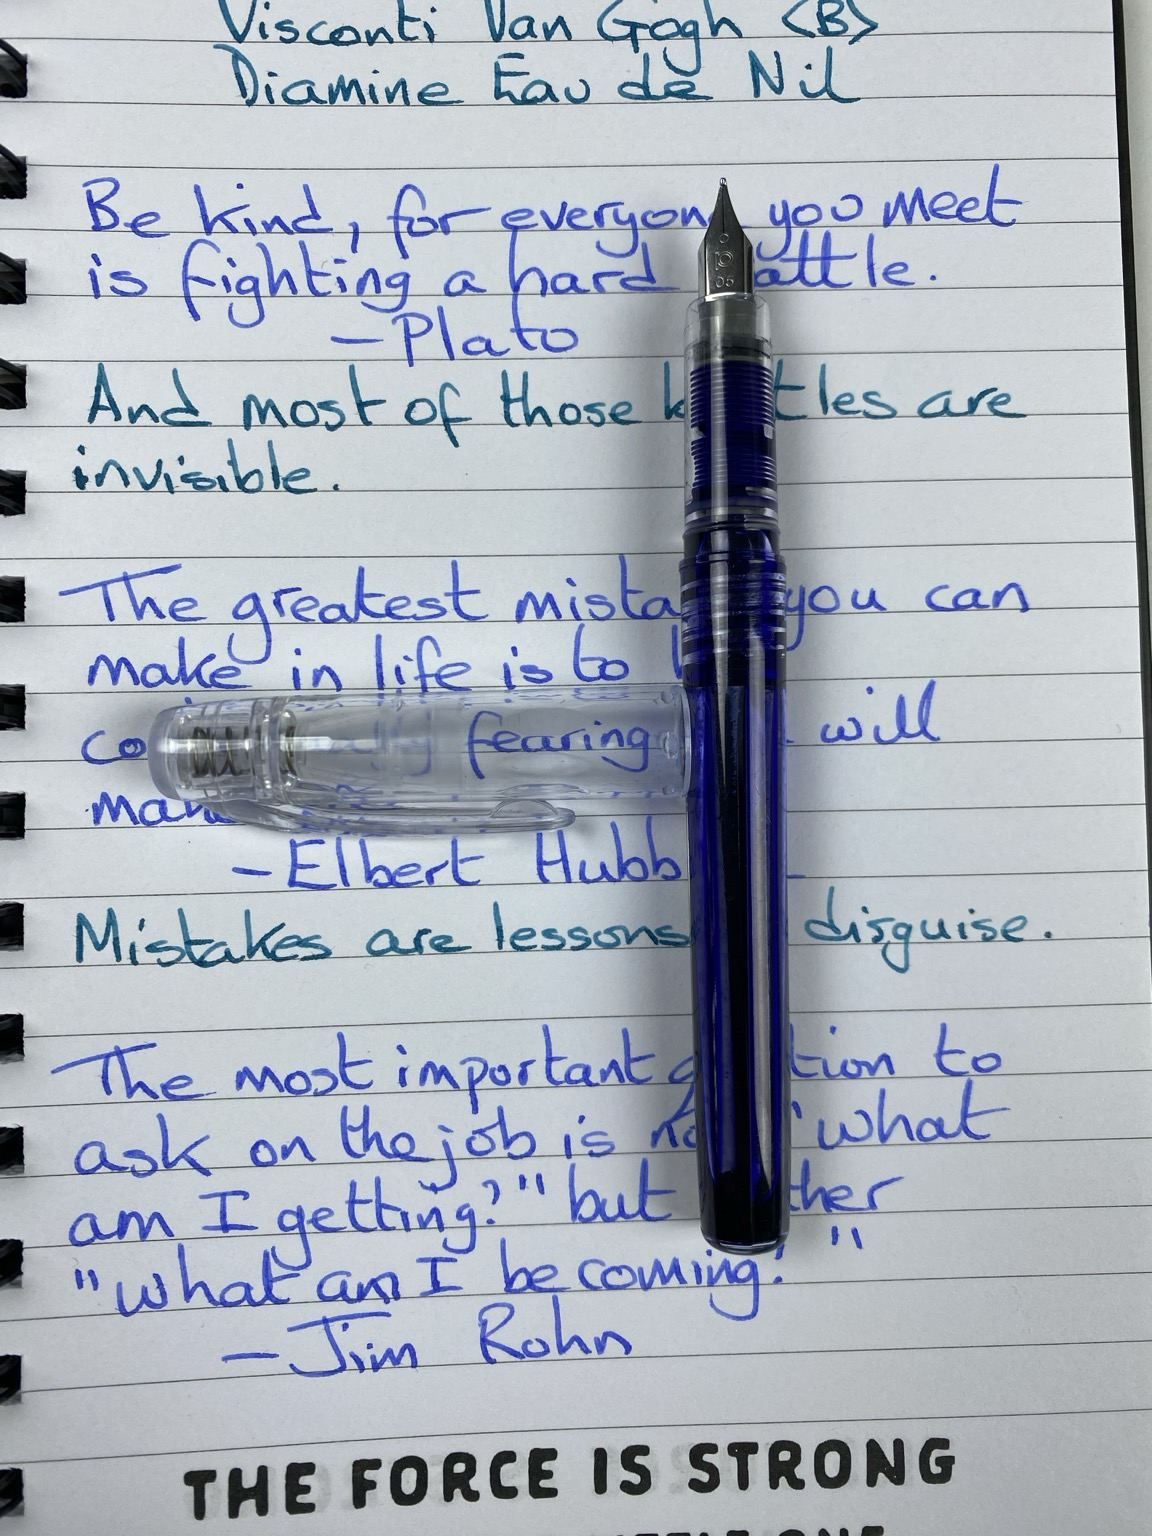 Visconti Van Gogh <B>
Diamine Eau de Nil
Be kind, for everyone you meet
is fighting a hard battle.
- Plato
And most of those battles are
invisible.
The greatest mistake you can
make in life is to
fearing will
- Elbert Hubb
Mistakes are lessons disguise.
The most important question to
ask on the job is not "what
am I getting?" but rather
"what am I becoming?"
- Jim Rohn
THE FORCE IS STRONG